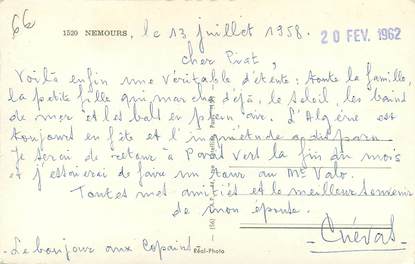 66
1520 NEMOURS, le 13 juillet 1958.
20 FEV. 1962
Cher Pirat,
Voilà enfin une véritable détente : toute la famille,
la petite fille qui marche déjà, le soleil, les bains
de mer et les bals en plein air. L'Algérie est
toujours en fête et l'inquiétude a disparu
Je serai de retour à Paras vers la fin du mois
et j'essaierai de faire un tour au Mt Valo.
Toutes mes amitiés et le meilleur souvenir
de mon épouse.
Le bonjour aux Copains
Réal-Photo